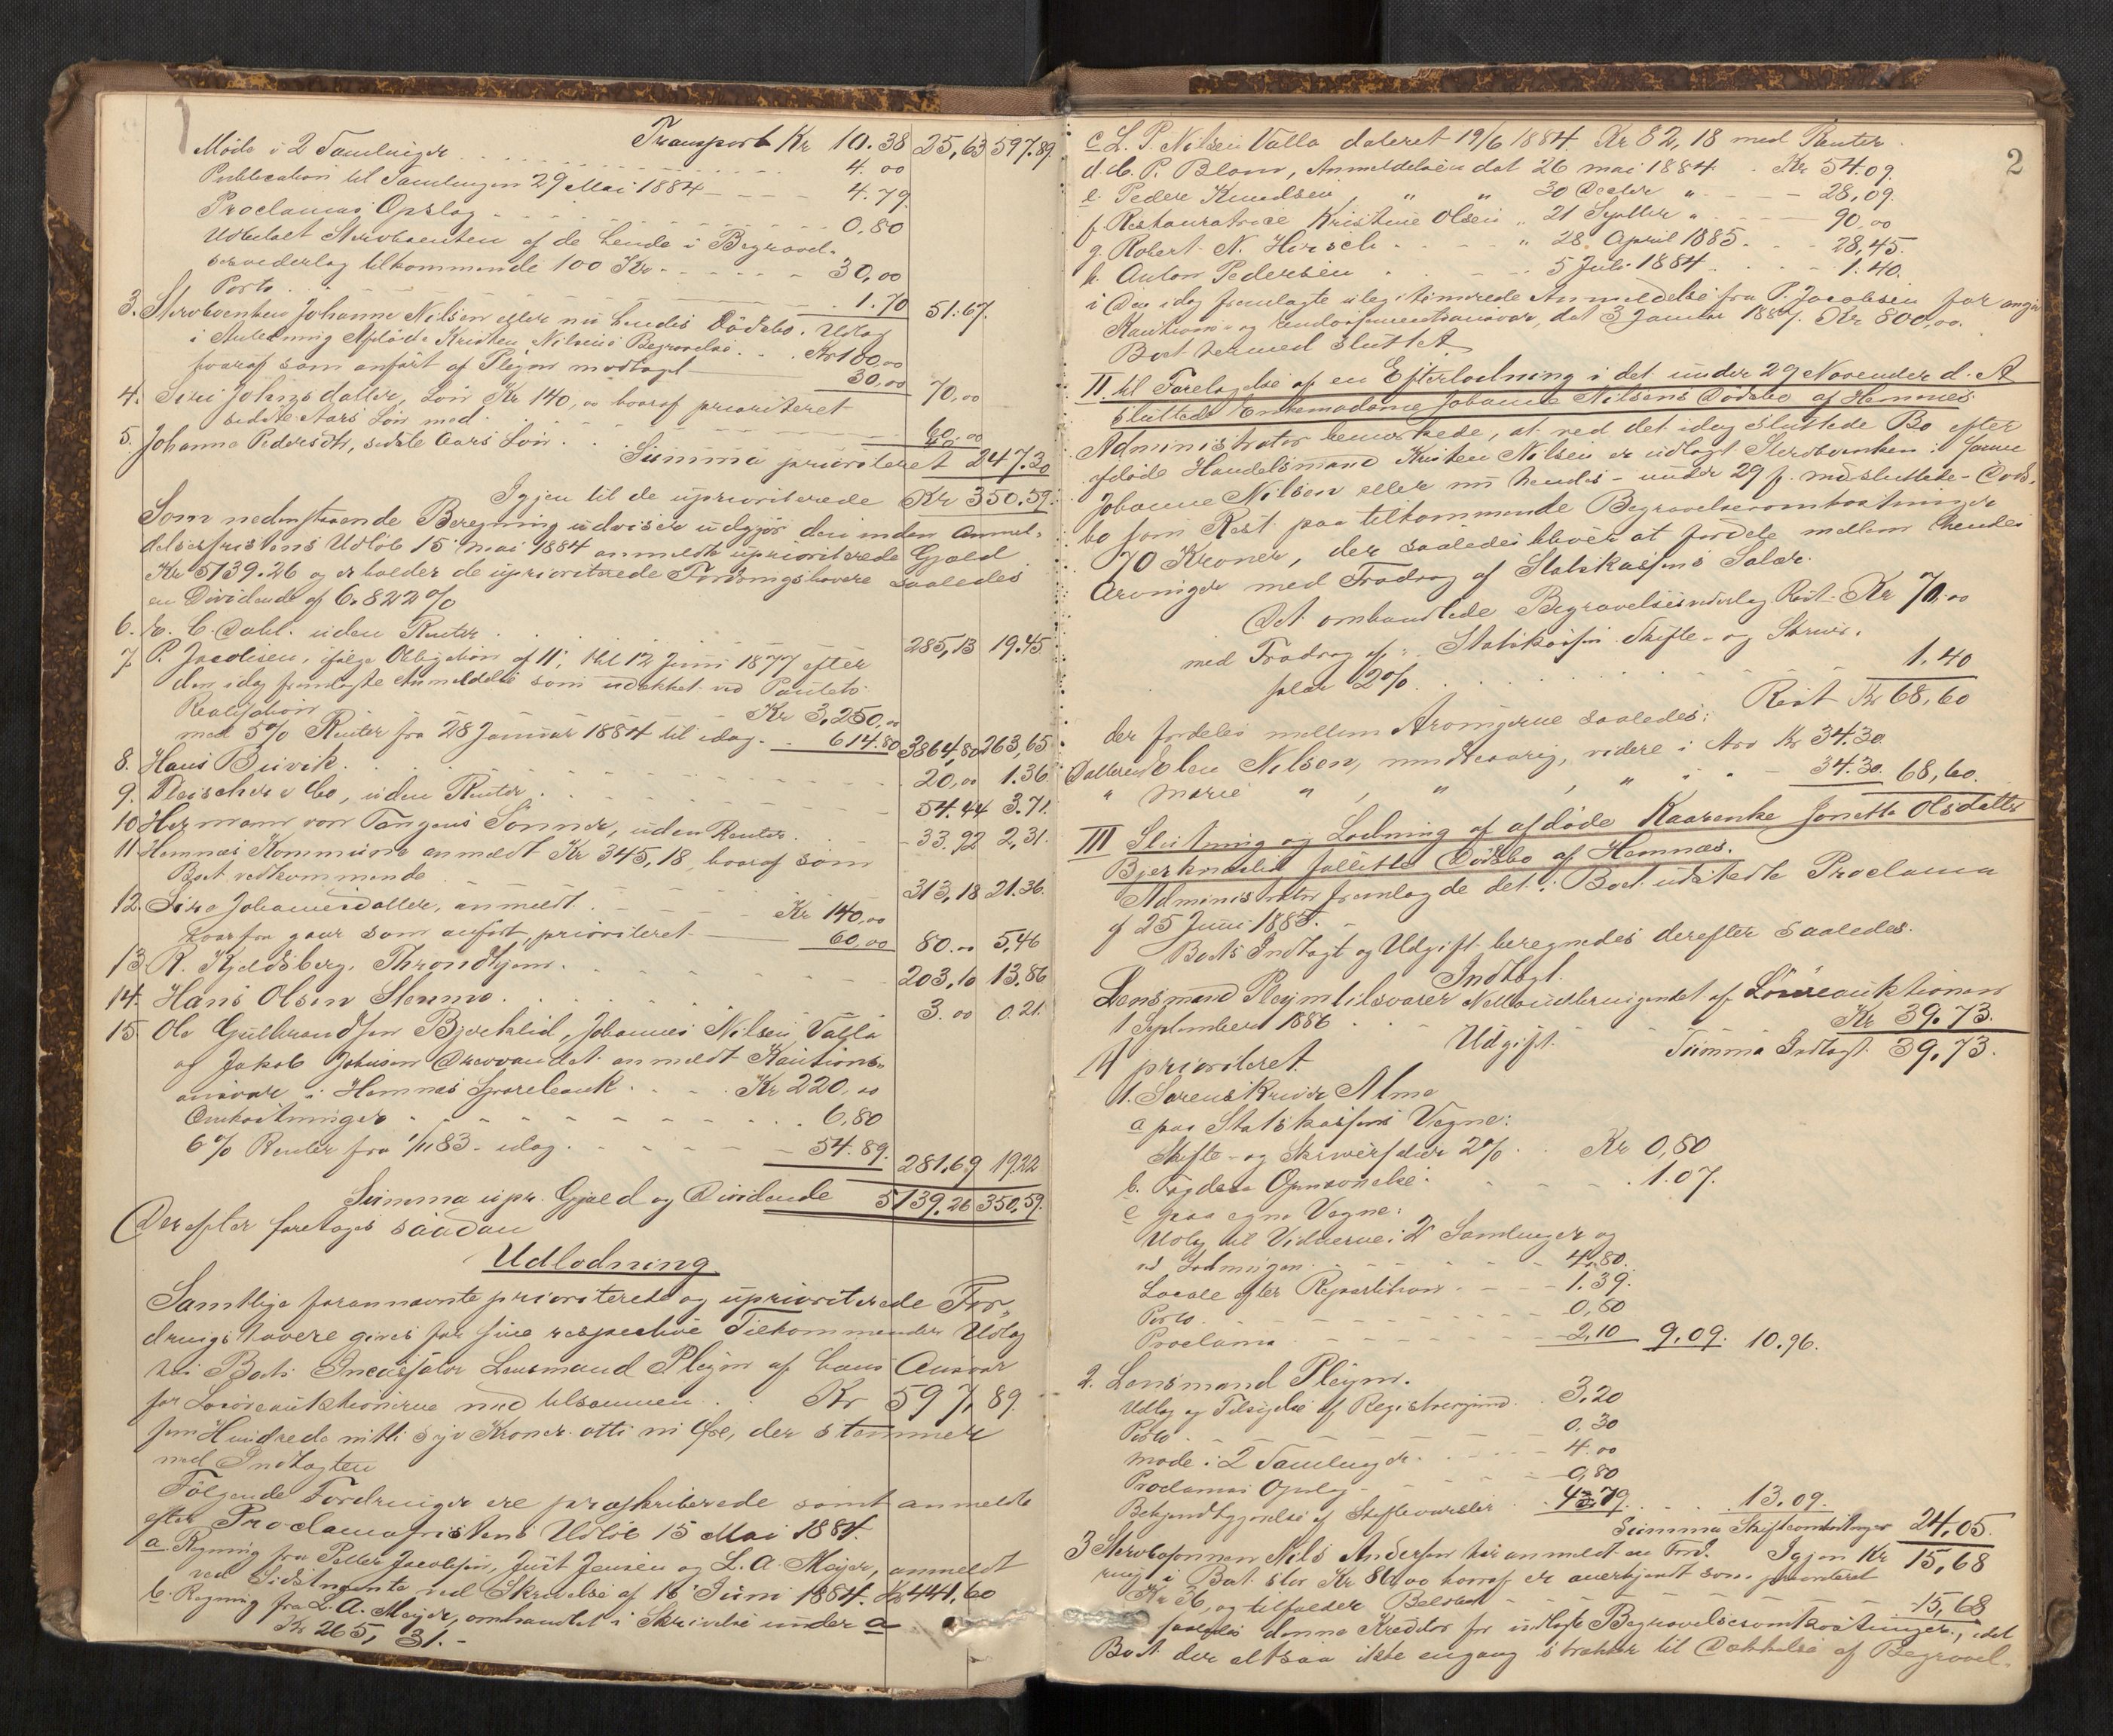 Transport Kr 10.38 25,63 597.89
Møde i 2 Samlinger 4.00
Publication til Samlingen 29 Mai 1884 4.79
Proclamas Opslag 0.80
Udbetalt Sterboenken af de hende i Begravel-
sesvederlag tilkommende 100 Kr. 30,00
Porto 1.70 51.67.
3. Sterboenken Johanne Nilsen eller nu hendes Dødsbo. Udlæg
i Anledning Afdøde Kristen Nilsens Begravelse Kr 100,00
hvoraf som anført af Plejm modtaget 30.00 70,00
4. Sini Johansdatter, Løn Kr 140,00 hvoraf prioriteret
sidste Aars Løn med 60.00
5. Johanna Pedersdtr, sidste Aars Løn 40.00
Summa prioriteret 247.30
Igjen til de uprioriterede Kr 350.59.
Som nedenstaaende Beregning udviser udgjør den inden Anmel-
delsesfristens Udløb 15 Mai 1884 anmeldte uprioriterede Gjæld
Kr 5139.26 og erholder de uprioriterede Fordringshavere saaledes
en Dividende af 6.822%
6. E. C. Dahl. uden Renter 285,13 19.45
7. P. Jacobsen, ifølge Obligation af 11', thl 12 Juni 1877 efter
den idag fremlagte Anmeldelse som udækket ved Pantets
Realisation Kr 3,250,00
med 5% Renter fra 28 Januar 1884 til idag 614.80 3864,80 263,65
8. Hans Buvik 20,00 1.36
9. Fleischer & Co, uden Renter 54.44 3.71.
10 Hermann von Tangens Sønner, uden Renter 33.92 2,31.
11 Hemnæs Kommune anmeldt Kr 345,18, hvoraf som
Boet vedkommende 313,18 21.36.
12. Sire Johannesdatter, anmeldt Kr 140,00
hvorfra gaar som anført prioriteret 60,00 80.00 5,46
13. R. Kjeldsberg, Throndhjem. 203,10 13,86
14. Hans Olsen Stenmo 3.00 0.21.
15. Ole Gulbrandsen Bjerklid, Johannes Nilsen Valla
og Jakob Johnsen Drevvandet anmeldt Kautions-
ansvar i Hemnæs Sparebank Kr 220,00
Omkostninger 6,80
6% Renter fra 1/11 83 - idag 54.89. 281,69 19.22
Summa upr. Gjæld og Dividende 5139.26 350,59.
Derefter foretages saadan
Udlodning
Samtlige forannævnte prioriterede og uprioriterede For-
dringshavere gives for sine respective Tilkommender Udlæg
hos Boets Incassator Lensmand Plejm af hans Ansvar
for Løsøreauktionerne med tilsammen Kr 597,89.
fem Hundrede nitti syv Kroner otti ni Øre, der stemmer
med Indtægten
Følgende Fordringer ere præskriberede samt anmeldte
efter Proclamafristens Udløb 15 Mai 1884.
a. Regning fra Petter Jacobsen, Just Jensen og L. A. Meyer, anmeldt
ved Sidstnævnte ved Skrivelse af 16 Juni 1884. Kr 441,60
b. Regning fra L. A. Meyer, omhandlet i Skrivelse under a
Kr 265, 31.-
2
c L. P. Nilsen Valla dateret 19/6 1884 Kr 82,18 med Renter.
d. C. P. Blom, Anmeldelsen dat 26 mai 1884 Kr 54.09.
e. Peder Knudsen, " " 30 Decbr " 28,09.
f. Restauratrice Kristine Olsen " 21 Septbr " 90,00
g. Robert N. Hirsch " 28. April 1885. 28,45.
h. Anton Pedersen 5 Juli 1884 1.40.
i Den idag fremlagte ulegitimerede Anmeldelse fra P. Jacobsen for angiv
Kautions- og Endossementsansvar, dat 3 Januar 1887. Kr 800,00.
Boet hermed sluttet
II til Foretagelse af en Efterlodning i det under 29 November d. A
sluttede Enkemadame Johanne Nilsens Dødsbo af Hemnes
Administrator bemærkede, at ved det idag sluttede Bo efter
afdøde Handelsmand Kristen Nilsen er udlagt Sterboenken i samme
Johanne Nilsen eller nu hendes - under 29 f. m. sluttede - Døds-
bo som Rest paa tilkommende Begravelsesomkostninger
70 Kroner, der saaledes bliver at fordele mellem hendes
Arvinger med Fradrag af Statskassens Salær.
Det omhandlede Begravelsesvederlag Rest Kr 70,00
med Fradrag af Statskassen Skifte- og Skriver-
salær 2% 1,40
Rest Kr 68,60
der fordeles mellem Arvingerne saaledes:
Datteren Elen Nilsen, mindreaarig, videre i Arv Kr 34.30.
" Marie " , " , " 34.30. 68,60.
III Slutning og Lodning af afdøde Kaarenke Jonetta Olsdatter
Bjerknæslid fallitte Dødsbo af Hemnæs.
Administrator fremlagde det i Boet udstedte Proclama
af 25 Juni 1885. -
Boets Indtægt og Udgift beregnedes derefter saaledes.
Indtægt.
Lensmand Plejm tilsvarer Nettoudbringendet af Løsøreauktionen
1 September 1886 Kr 39.73.
Summa Indtægt 39,73.
Udgift.
1/ prioriteret
1. Sorenskriver Alme
a paa Statskassens Vegne:
Skifte- og Skriversalær 2% Kr 0,80
b. Fogdens Opnævnelse 1.07.
c paa egne Vegne:
Udlæg til Vidnerne i 2 Samlinger og
ved Lodningen 4,80.
Locale efter Repartition 1.39.
Porto 0,80
Proclama 2,10 9,09. 10.96.
2. Lensmand Plejm.
Udlæg og Tilsigelse af Registrering 3,20
Porto 0,30
Møde i 2 Samlinger 4.00
Proclamas Opslag 0,80
Bekjendtgjørelse af Skiftevarsler 4.79. 13,09.
Summa Skifteomkostninger 24,05.
Igjen Kr 15,68
3 Sterbosønnen Nils Andersen har anmeldt en Ford-
ring i Boet stor Kr 80,00 hvoraf er anerkjendt som prioriteret
Kr 36, og tilfalder Beløbet 15,68
saaledes denne Kreditor for udlagte Begravelsesomkostninger, idet
Boet der altsaa ikke engang strækker til Dækkelse af Begravel-